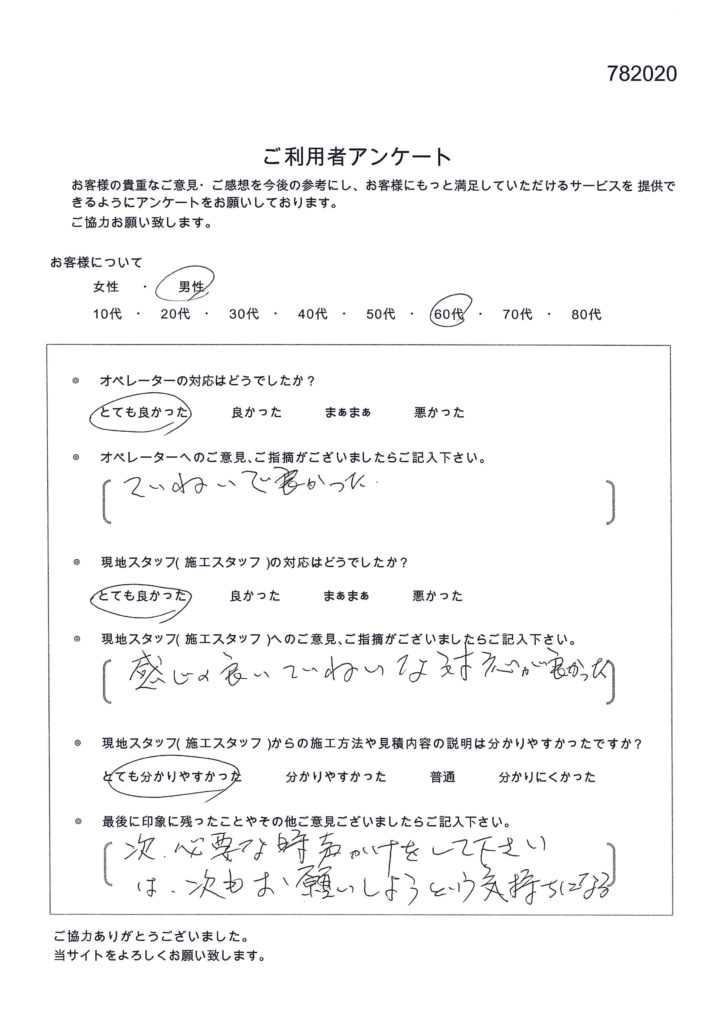 782020
ご利用者アンケート
お客様の貴重なご意見・ご感想を今後の参考にし、お客様にもっと満足していただけるサービスを 提供で
きるようにアンケートをお願いしております。
ご協力お願い致します。
お客様について
女性 ・ 男性
10代 ・ 20代 ・ 30代 ・ 40代 ・ 50代 ・ 60代 ・ 70代 ・ 80代
◎ オペレーターの対応はどうでしたか？
とても良かった 良かった まぁまぁ 悪かった
◎ オペレーターへのご意見、ご指摘がございましたらご記入下さい。
ていねいで良かった.
◎ 現地スタッフ( 施工スタッフ )の対応はどうでしたか？
とても良かった 良かった まぁまぁ 悪かった
◎ 現地スタッフ( 施工スタッフ )へのご意見、ご指摘がございましたらご記入下さい。
感じの良いていねいな対応が良かった
◎ 現地スタッフ( 施工スタッフ )からの施工方法や見積内容の説明は分かりやすかったですか？
とても分かりやすかった 分かりやすかった 普通 分かりにくかった
◎ 最後に印象に残ったことやその他ご意見ございましたらご記入下さい。
次、必要な時声かけをして下さい
は、次もお願いしようという気持ちになる
ご協力ありがとうございました。
当サイトをよろしくお願い致します。